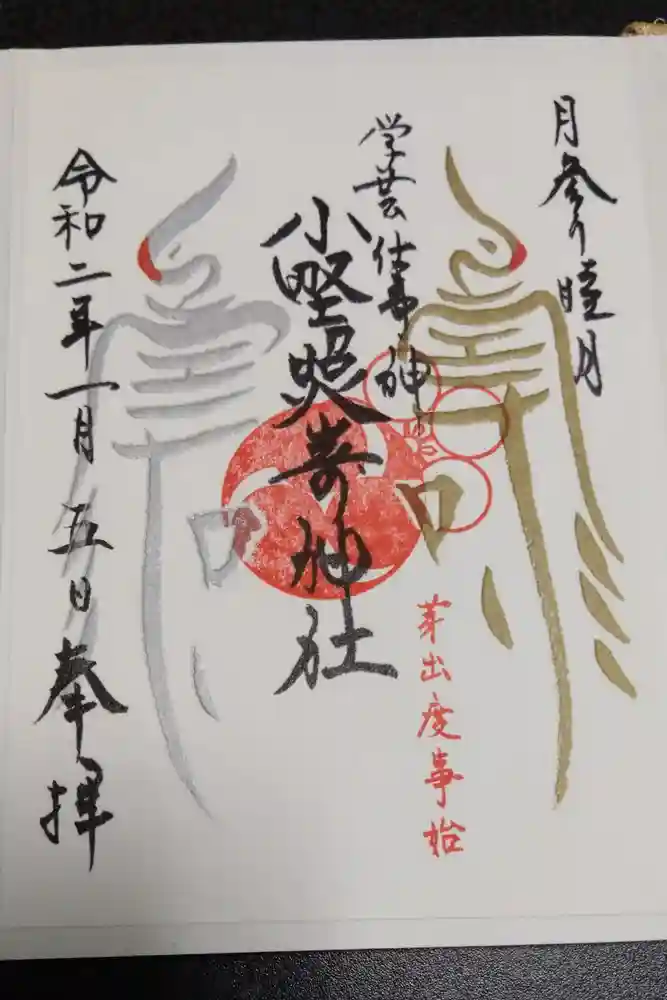 月参り睦月
学芸仕事神
小野照嵜神社
芽出度事始
令和二年一月五日奉拝